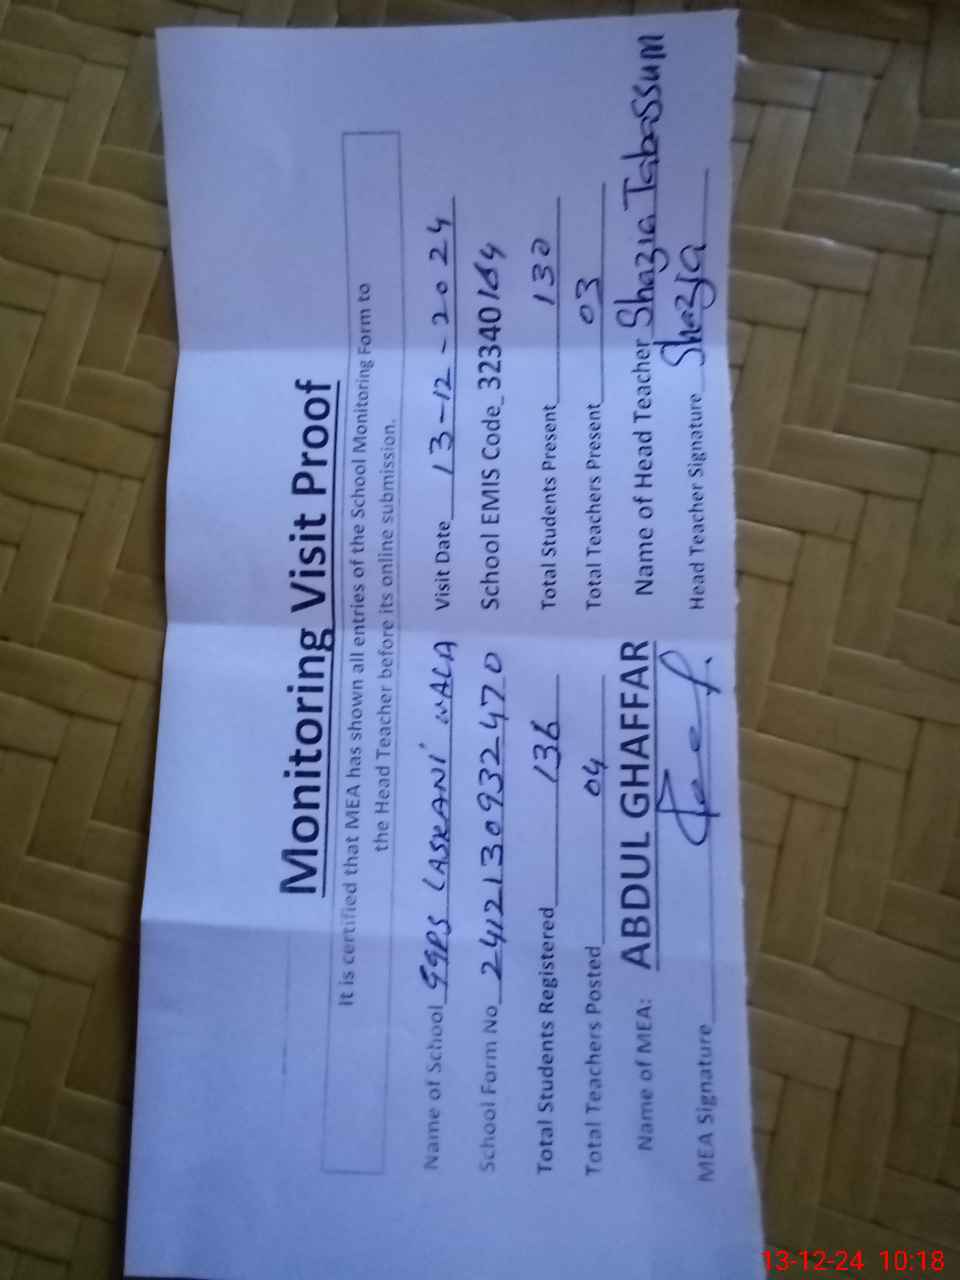 Monitoring Visit Proof
It is certified that MEA has shown all entries of the School Monitoring Form to
the Head Teacher before its online submission.
Name of School GGPS LASKANI WALA Visit Date 13-12-2024
School Form No 2412130932470 School EMIS Code 32340164
Total Students Registered 136 Total Students Present 130
Total Teachers Posted 04 Total Teachers Present 03
Name of MEA: ABDUL GHAFFAR Name of Head Teacher Shazia Tabassum
MEA Signature Head Teacher Signature Shazia
13-12-24 10:18